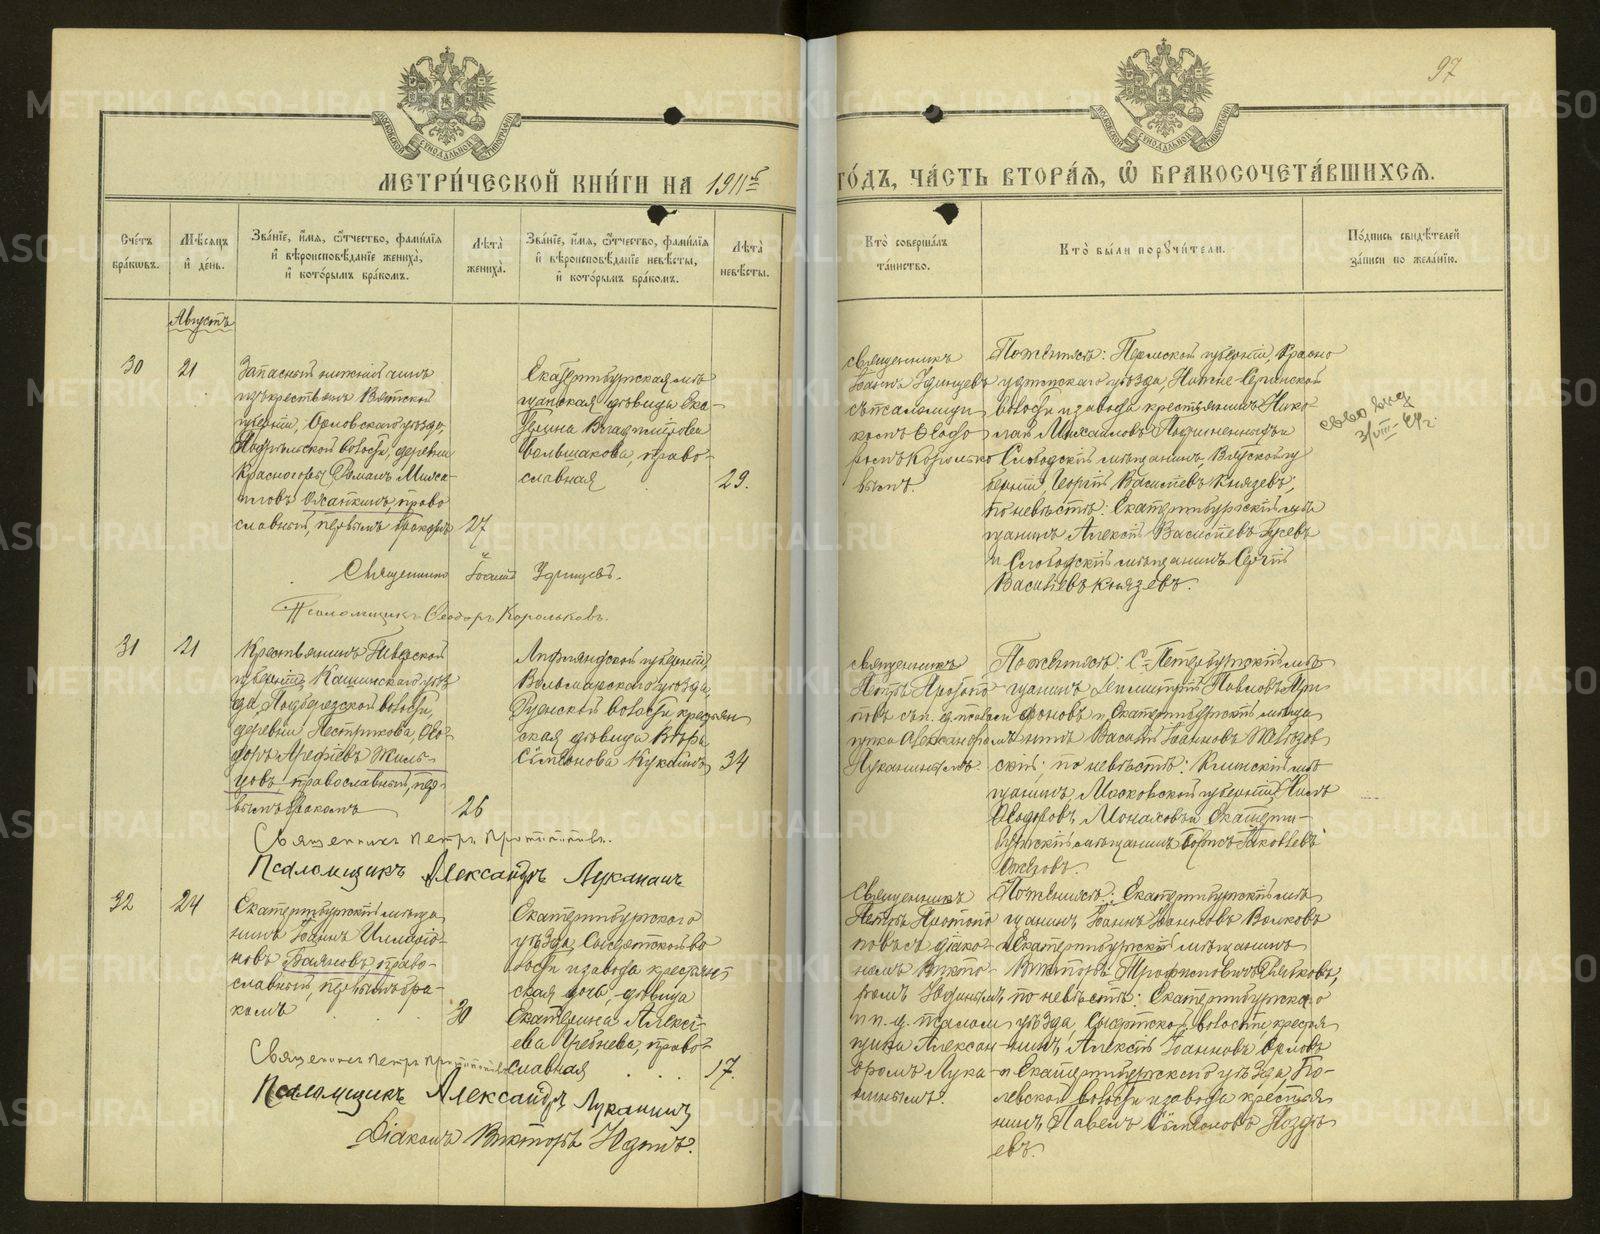 97
МОСКОВСКОЙ СѴНОДАЛЬНОЙ ТИПОГРАФІИ
МОСКОВСКОЙ СѴНОДАЛЬНОЙ ТИПОГРАФІИ
МЕТРИ́ЧЕСКОЙ КНИ́ГИ НА 1911й
ГО́ДЪ, ЧА́СТЬ ВТОРА́Ѧ, Ѽ БРАКОСОЧЕТА́ВШИХСѦ.
Сче́тъ бра́кѡвъ.
Мѣ́сѧцъ и҆ де́нь.
Зва́нїе, и҆́мѧ, ѻ҆́тчество, фами́лїѧ и҆ вѣроисповѣ́данїе жениха̀, и҆ кото́рымъ бра́комъ.
Лѣта̀ жениха̀.
Зва́нїе, и҆́мѧ, ѻ҆́тчество, фами́лїѧ и҆ вѣроисповѣ́данїе невѣ́сты, и҆ кото́рымъ бра́комъ.
Лѣта̀ невѣ́сты.
Кто̀ соверша́лъ та́инство.
Кто̀ бы́ли порꙋчи́тели.
По́дпись свидѣ́телей за́писи по жела́нїю.
Августъ
30
21
Запасный нижний чинъ
изъ крестьянъ Вятской
губерніи, Орловскаго уѣзда,
волости, деревни
Красногоръ Романъ Миха-
иловъ Ожапкинъ, право
славный, первымъ бракомъ
27
Екатеринбургская мѣ
щанская дѣвица Ека-
терина Владимірова
Большакова, право-
славная
29.
священникъ
Іоаннъ Удинцевъ
съ псаломщи-
комъ Ѳеодо-
ромъ Королько
вымъ.
По женихѣ: Пермской губерніи, Красно
уфимскаго уѣзда, Нижне-Сергинской
волости и завода крестьянинъ Нико-
лай Михаиловъ и
Слободской мѣщанинъ, Вятской гу
берніи, Георгій Василіевъ Князевъ;
по невѣстѣ: Екатеринбургскій мѣ
щанинъ Алексій Василіевъ Гусевъ
и Слободскій мѣщанинъ Сергій
Василіевъ Князевъ.
3/VIII-44 г.
Священникъ Іоаннъ Удинцевъ.
Псаломщикъ Ѳеодоръ Корольковъ.
31
21
Крестьянинъ Тверской
губерніи, Кашинскаго уѣз
да, Подберезской волости,
деревни Пестрикова, Ѳео-
доръ Арефіевъ Жиль-
цовъ, православный, пер-
вымъ бракомъ
26
Лифляндской губерніи,
Вольмарскаго уѣзда,
волости крестьян
ская дѣвица Вѣра
Симеонова
34
священникъ
Петръ Протопо
повъ съ и. д. псалом
щика Александромъ
Луканинымъ
По женихѣ: С-Петербургскій мѣ
щанинъ Димитрій Павловъ Ари
фоновъ и Екатеринбургскій мѣща
нинъ Василій Іоанновъ
скій; по невѣстѣ: Клинскій мѣ
щанинъ, Московской губерніи, Нилъ
Ѳеодоровъ Монаховъ и Екатерин-
бургскій мѣщанинъ Іаковлевъ
Ожеговъ.
Священникъ Петръ Протопоповъ.
Псаломщикъ Александръ Луканинъ
32
24
Екатеринбургскій мѣща
нинъ Іоаннъ
новъ Баяновъ, право-
славный, первымъ бра-
комъ
30
Екатеринбургскаго
уѣзда, Сысертской во
лости и завода крестьян
ская дочь, дѣвица
Екатерина Алексі-
ева Чебнева, право-
славная
17.
Священникъ
Петръ Протопо
повъ съ діако-
номъ Викто-
ромъ Юдинымъ
и и. д. псалом
щика Алексан-
дромъ Лука-
нинымъ.
По женихѣ: Екатеринбургскій мѣ
щанинъ Іоаннъ Іоанновъ Волковъ
и Екатеринбургскій мѣщанинъ
Викторъ Трофимовичъ Рябковъ,
по невѣстѣ: Екатеринбургскаго
уѣзда, Сысертской волости крестья
нинъ, Алексій Іоанновъ Орловъ
и Екатеринбургскаго уѣзда, По-
левской волости и завода крестья
нинъ Павелъ Симеоновъ Поздѣ
евъ.
Священникъ Петръ Протопоповъ
Псаломщикъ Александръ Луканинъ
Діаконъ Викторъ Юдинъ.
METRIKI.GASO-URAL.RU